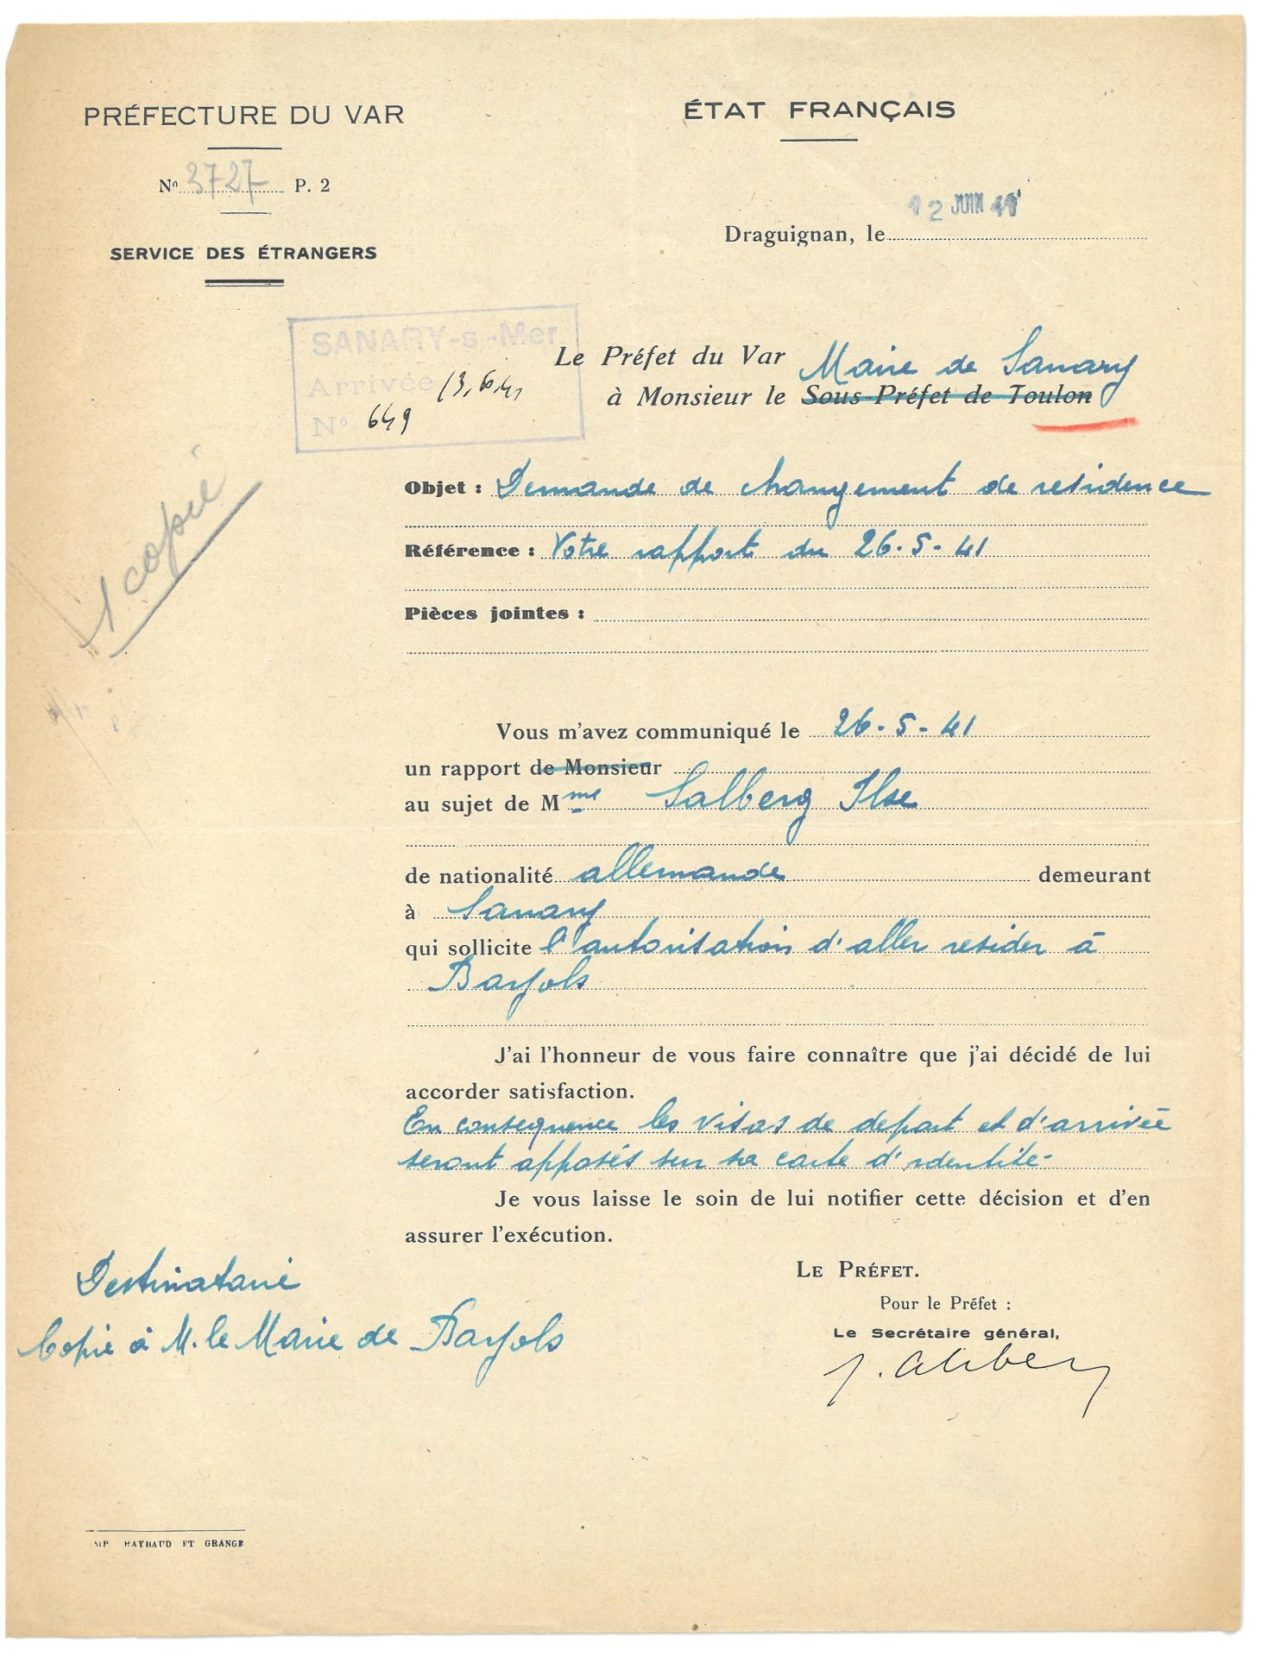 PRÉFECTURE DU VAR
Nº 3727 P. 2
SERVICE DES ÉTRANGERS
ÉTAT FRANÇAIS
12 JUIN 41
Draguignan, le
SANARY-s-Mer
Arrivée 13.6.41
Nº 649
Le Préfet du Var
Maire de Sanary
à Monsieur le Sous-Préfet de Toulon
1 copie
Objet : Demande de changement de residence
Référence : Votre rapport du 26-5-41
Pièces jointes :
Vous m'avez communiqué le 26-5-41
un rapport de Monsieur
au sujet de Mme Salberg Ilse
de nationalité allemande demeurant
à Sanary
qui sollicite l'autorisation d'aller resider à
Barjols
J'ai l'honneur de vous faire connaître que j'ai décidé de lui
accorder satisfaction.
En consequence les visas de depart et d'arrivée
seront apposés sur sa carte d'identité-
Je vous laisse le soin de lui notifier cette décision et d'en
assurer l'exécution.
LE PRÉFET.
Pour le Préfet :
Le Secrétaire général,
Destinataire
Copie à M. le Maire de Barjols
RAYBAUD ET GRANGE